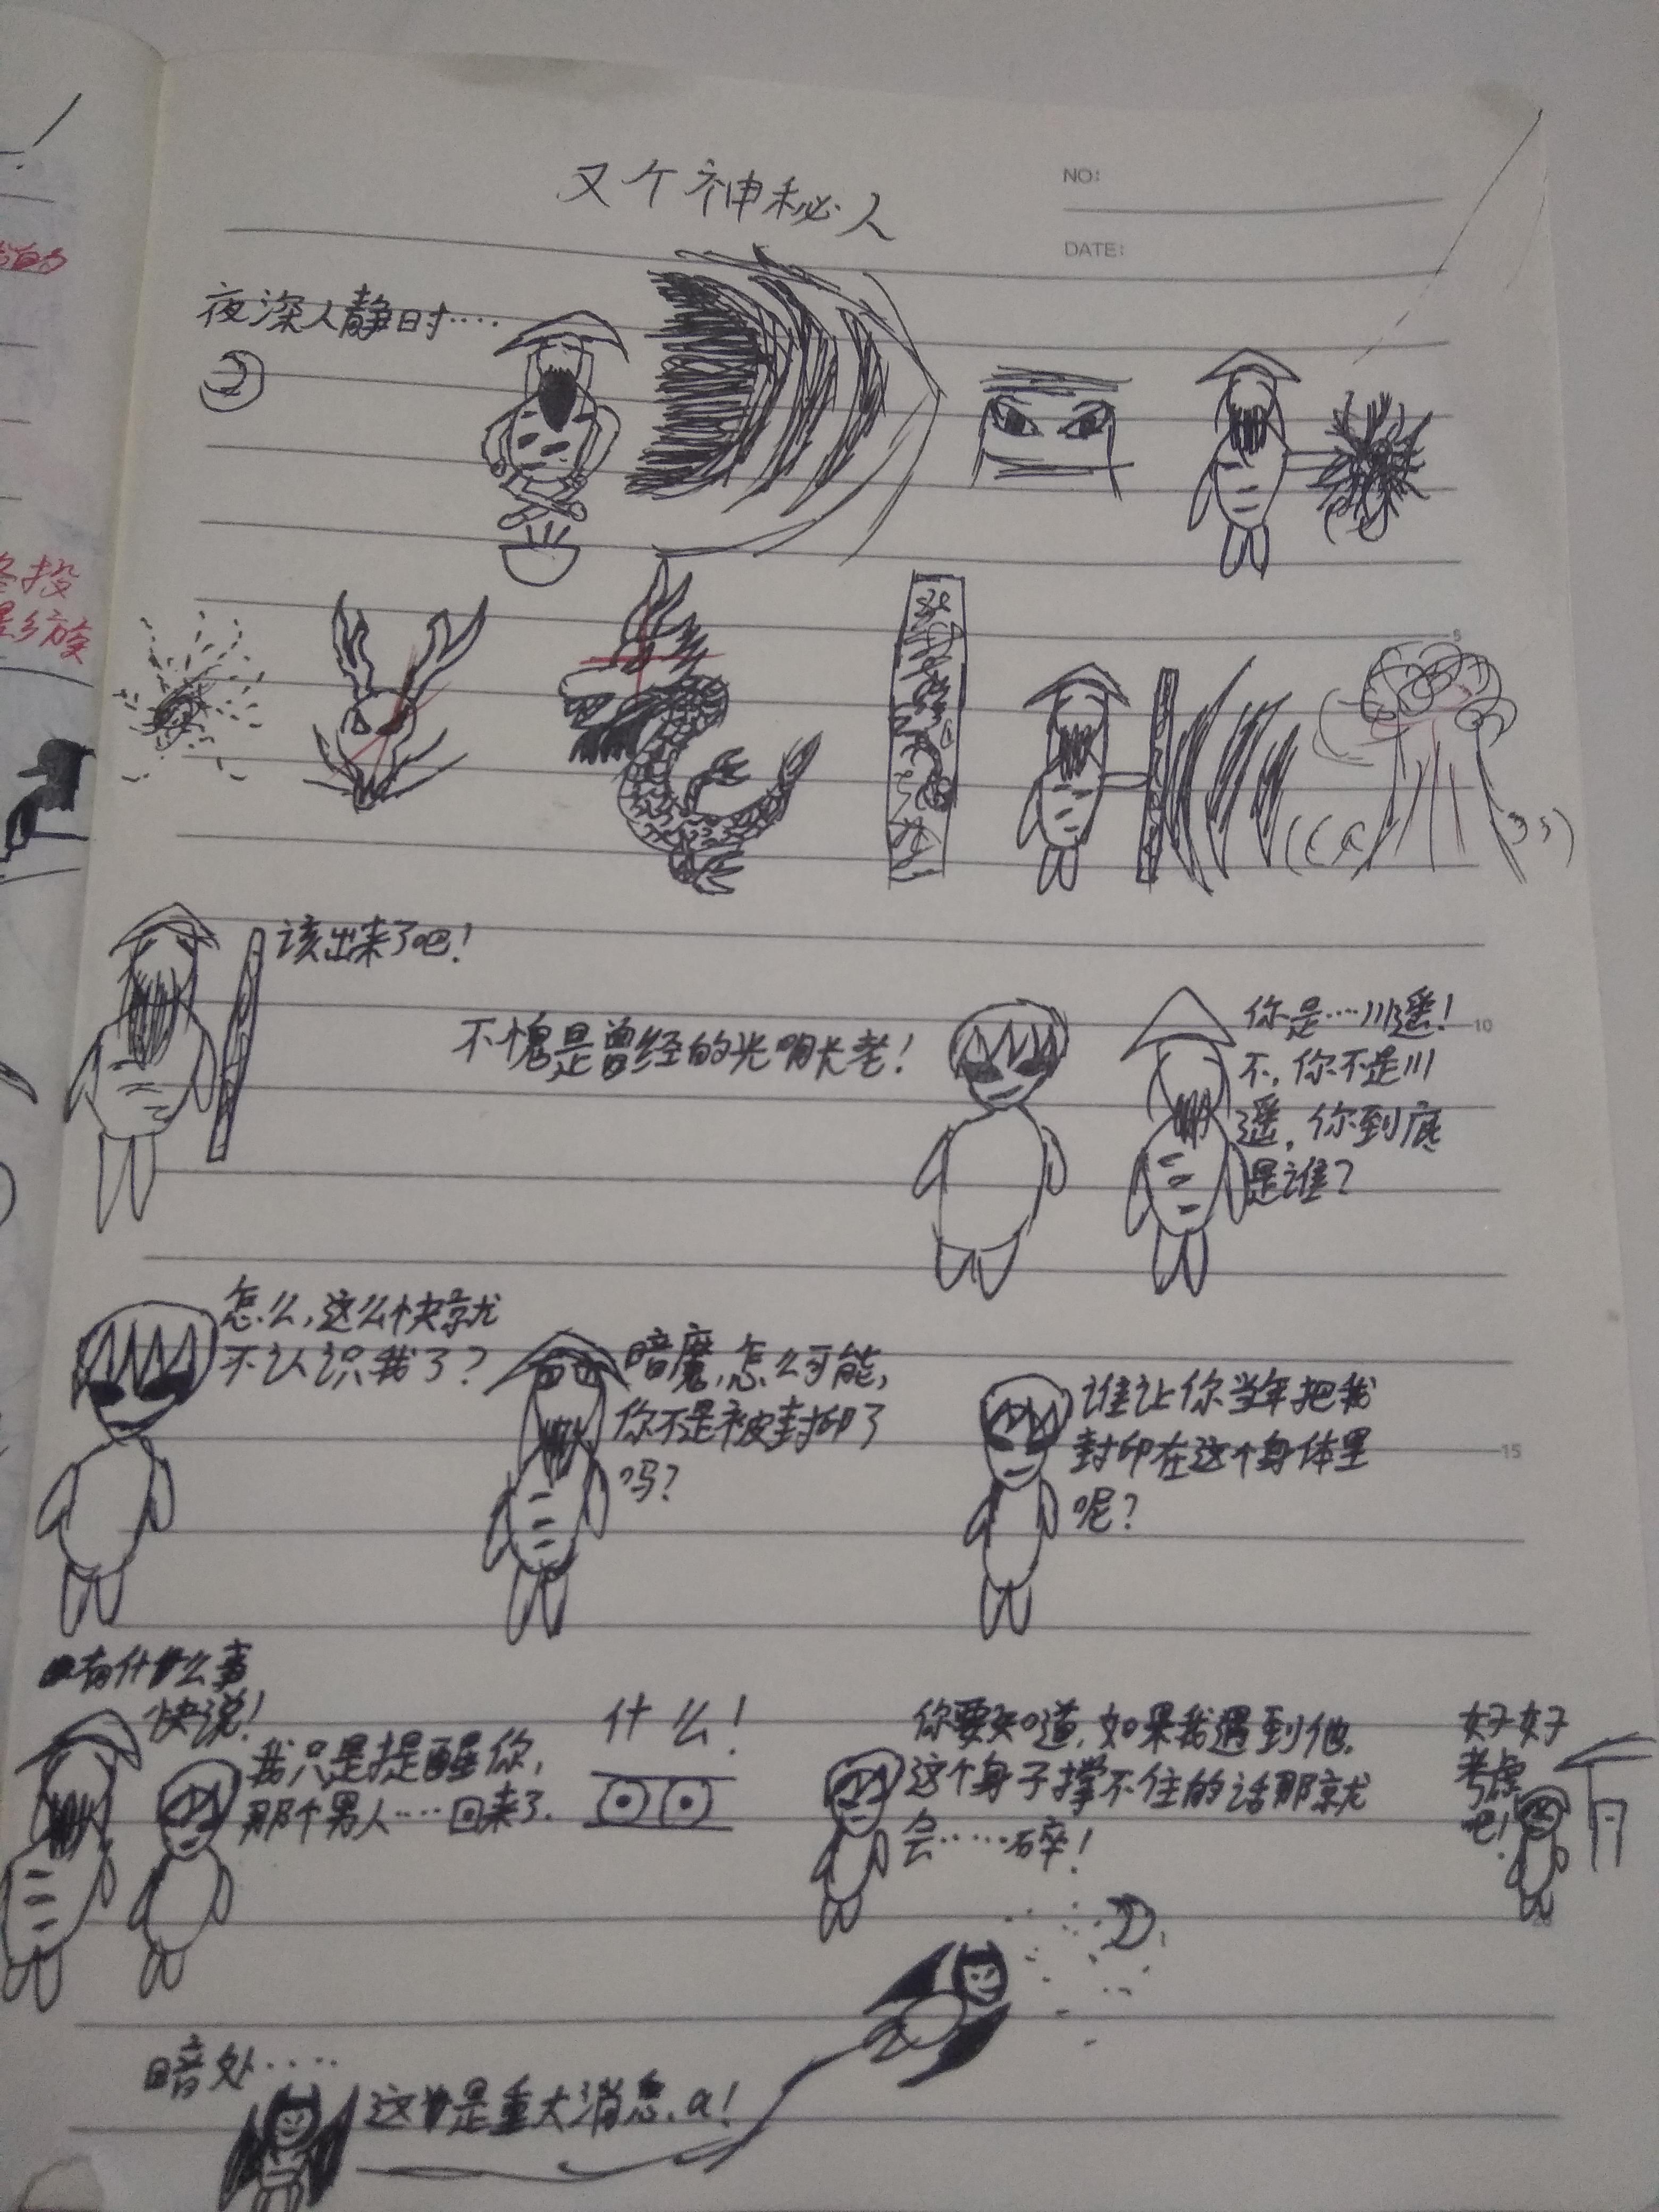 又个神秘人
NO:
DATE:
夜深人静时····
5
该出来了吧!
不愧是曾经的光明长老!
你是····川遥!
不,你不是川
遥,你到底
是谁?
10
怎么,这么快就
不认识我了?
暗魔,怎么可能,
你不是被封印了
吗?
谁让你当年把我
封印在这个身体里
呢?
15
有什么事
快说!
我只是提醒你,
那个男人····回来了.
什么!
你要知道,如果我遇到他,
这个身子撑不住的话那就
会·····碎!
好好
考虑
吧!
20
暗处····
这是重大消息,a!